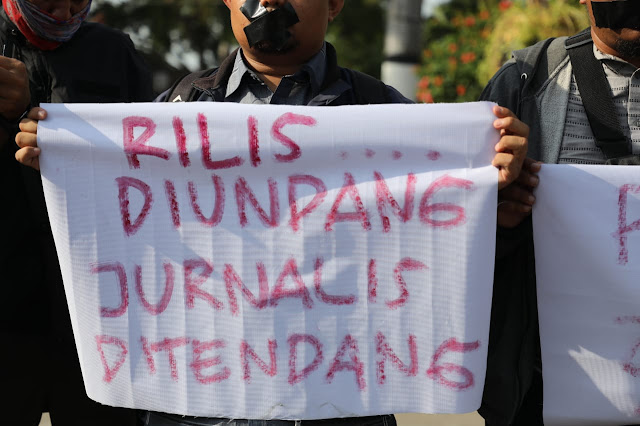 RILIS.....
DIUNDANG
JURNALIS
DITENDANG